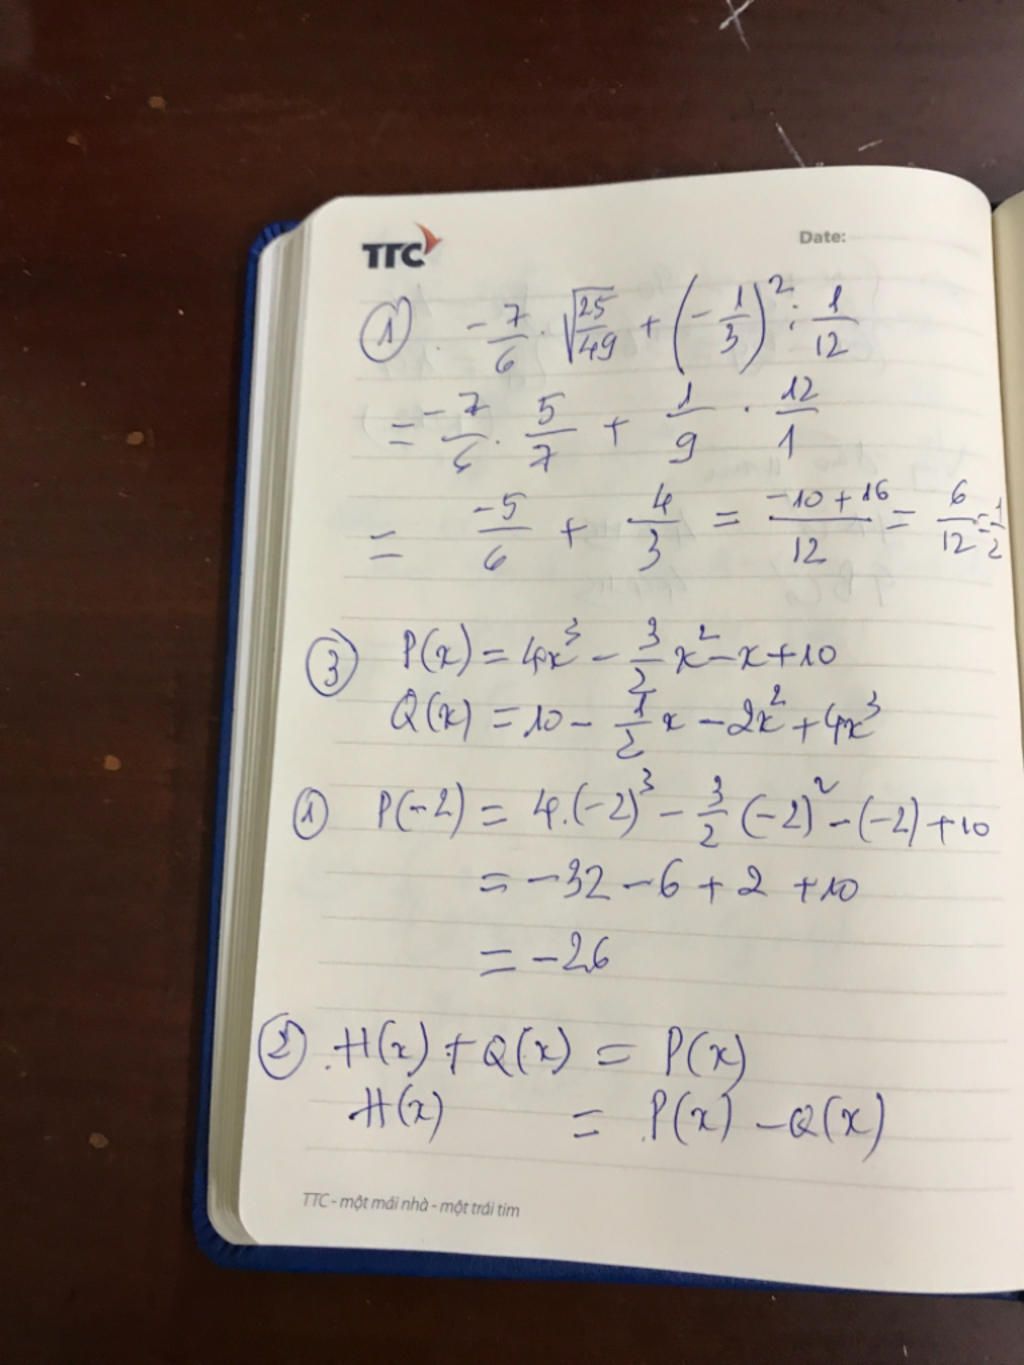 TTC
Date:
① -7/6 . √25/49 + (-1/3)² : 1/12
= -7/6 . 5/7 + 1/9 . 12/1
= -5/6 + 4/3 = -10+16/12 = 6/12 = 1/2
③ P(x) = 4x³ - 3/2 x² - x + 10
Q(x) = 10 - 1/2 x - 2x² + 4x³
① P(-2) = 4.(-2)³ - 3/2 (-2)² - (-2) + 10
= -32 - 6 + 2 + 10
= -26
② H(x) + Q(x) = P(x)
H(x) = P(x) - Q(x)
TTC - một mái nhà - một trái tim